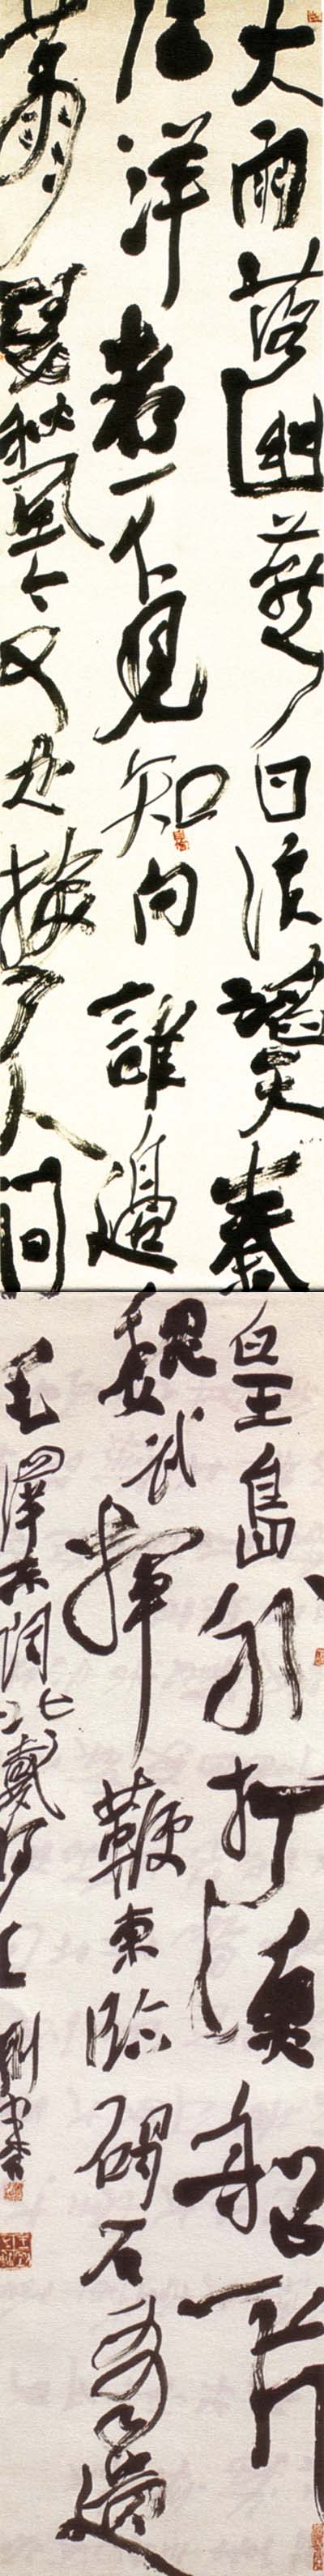 大雨落幽燕白浪滔天秦皇島外打魚船一片
汪洋都不見知向誰邊魏武揮鞭東臨碣石有遺
蕭瑟秋風今又是換了人間毛澤東詞北戴河